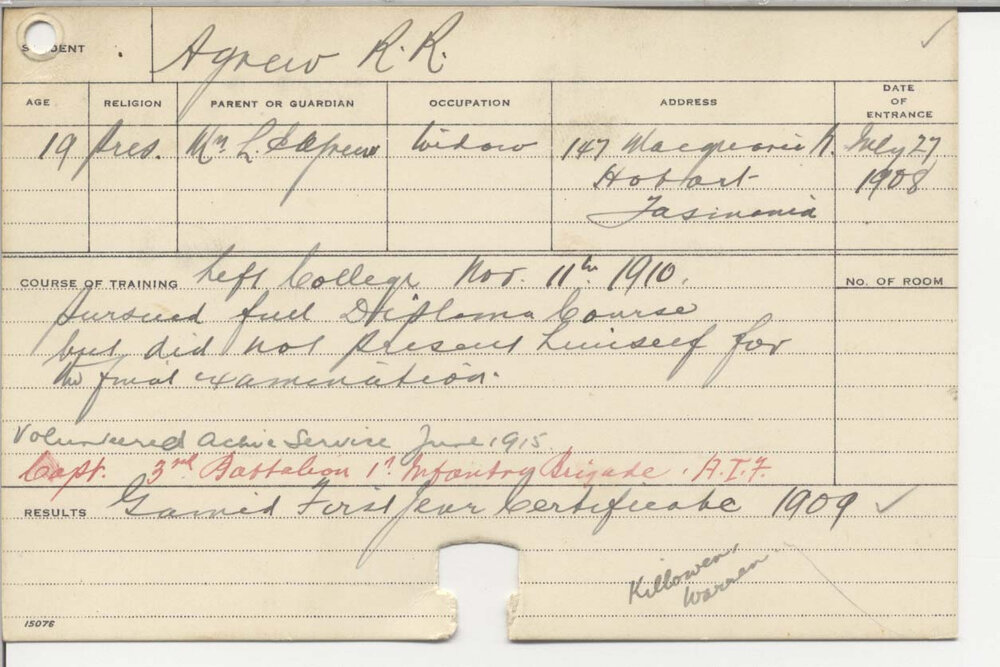 STUDENT Agnew R.R.
AGE RELIGION PARENT OR GUARDIAN OCCUPATION ADDRESS DATE OF ENTRANCE
19 Pres. Mrs L. Agnew Widow 147 Macquarie St. July 27
Hobart 1908
Tasmania
COURSE OF TRAINING Left College Nov. 11th 1910.
NO. OF ROOM
Pursued full Diploma Course
but did not present himself for
the final examination.
Volunteered Active Service June 1915.
Capt. 3rd Battalion 1st Infantry Brigade. A.I.F.
RESULTS Gained First Year Certificate 1909
Killowen,
Warren
15076